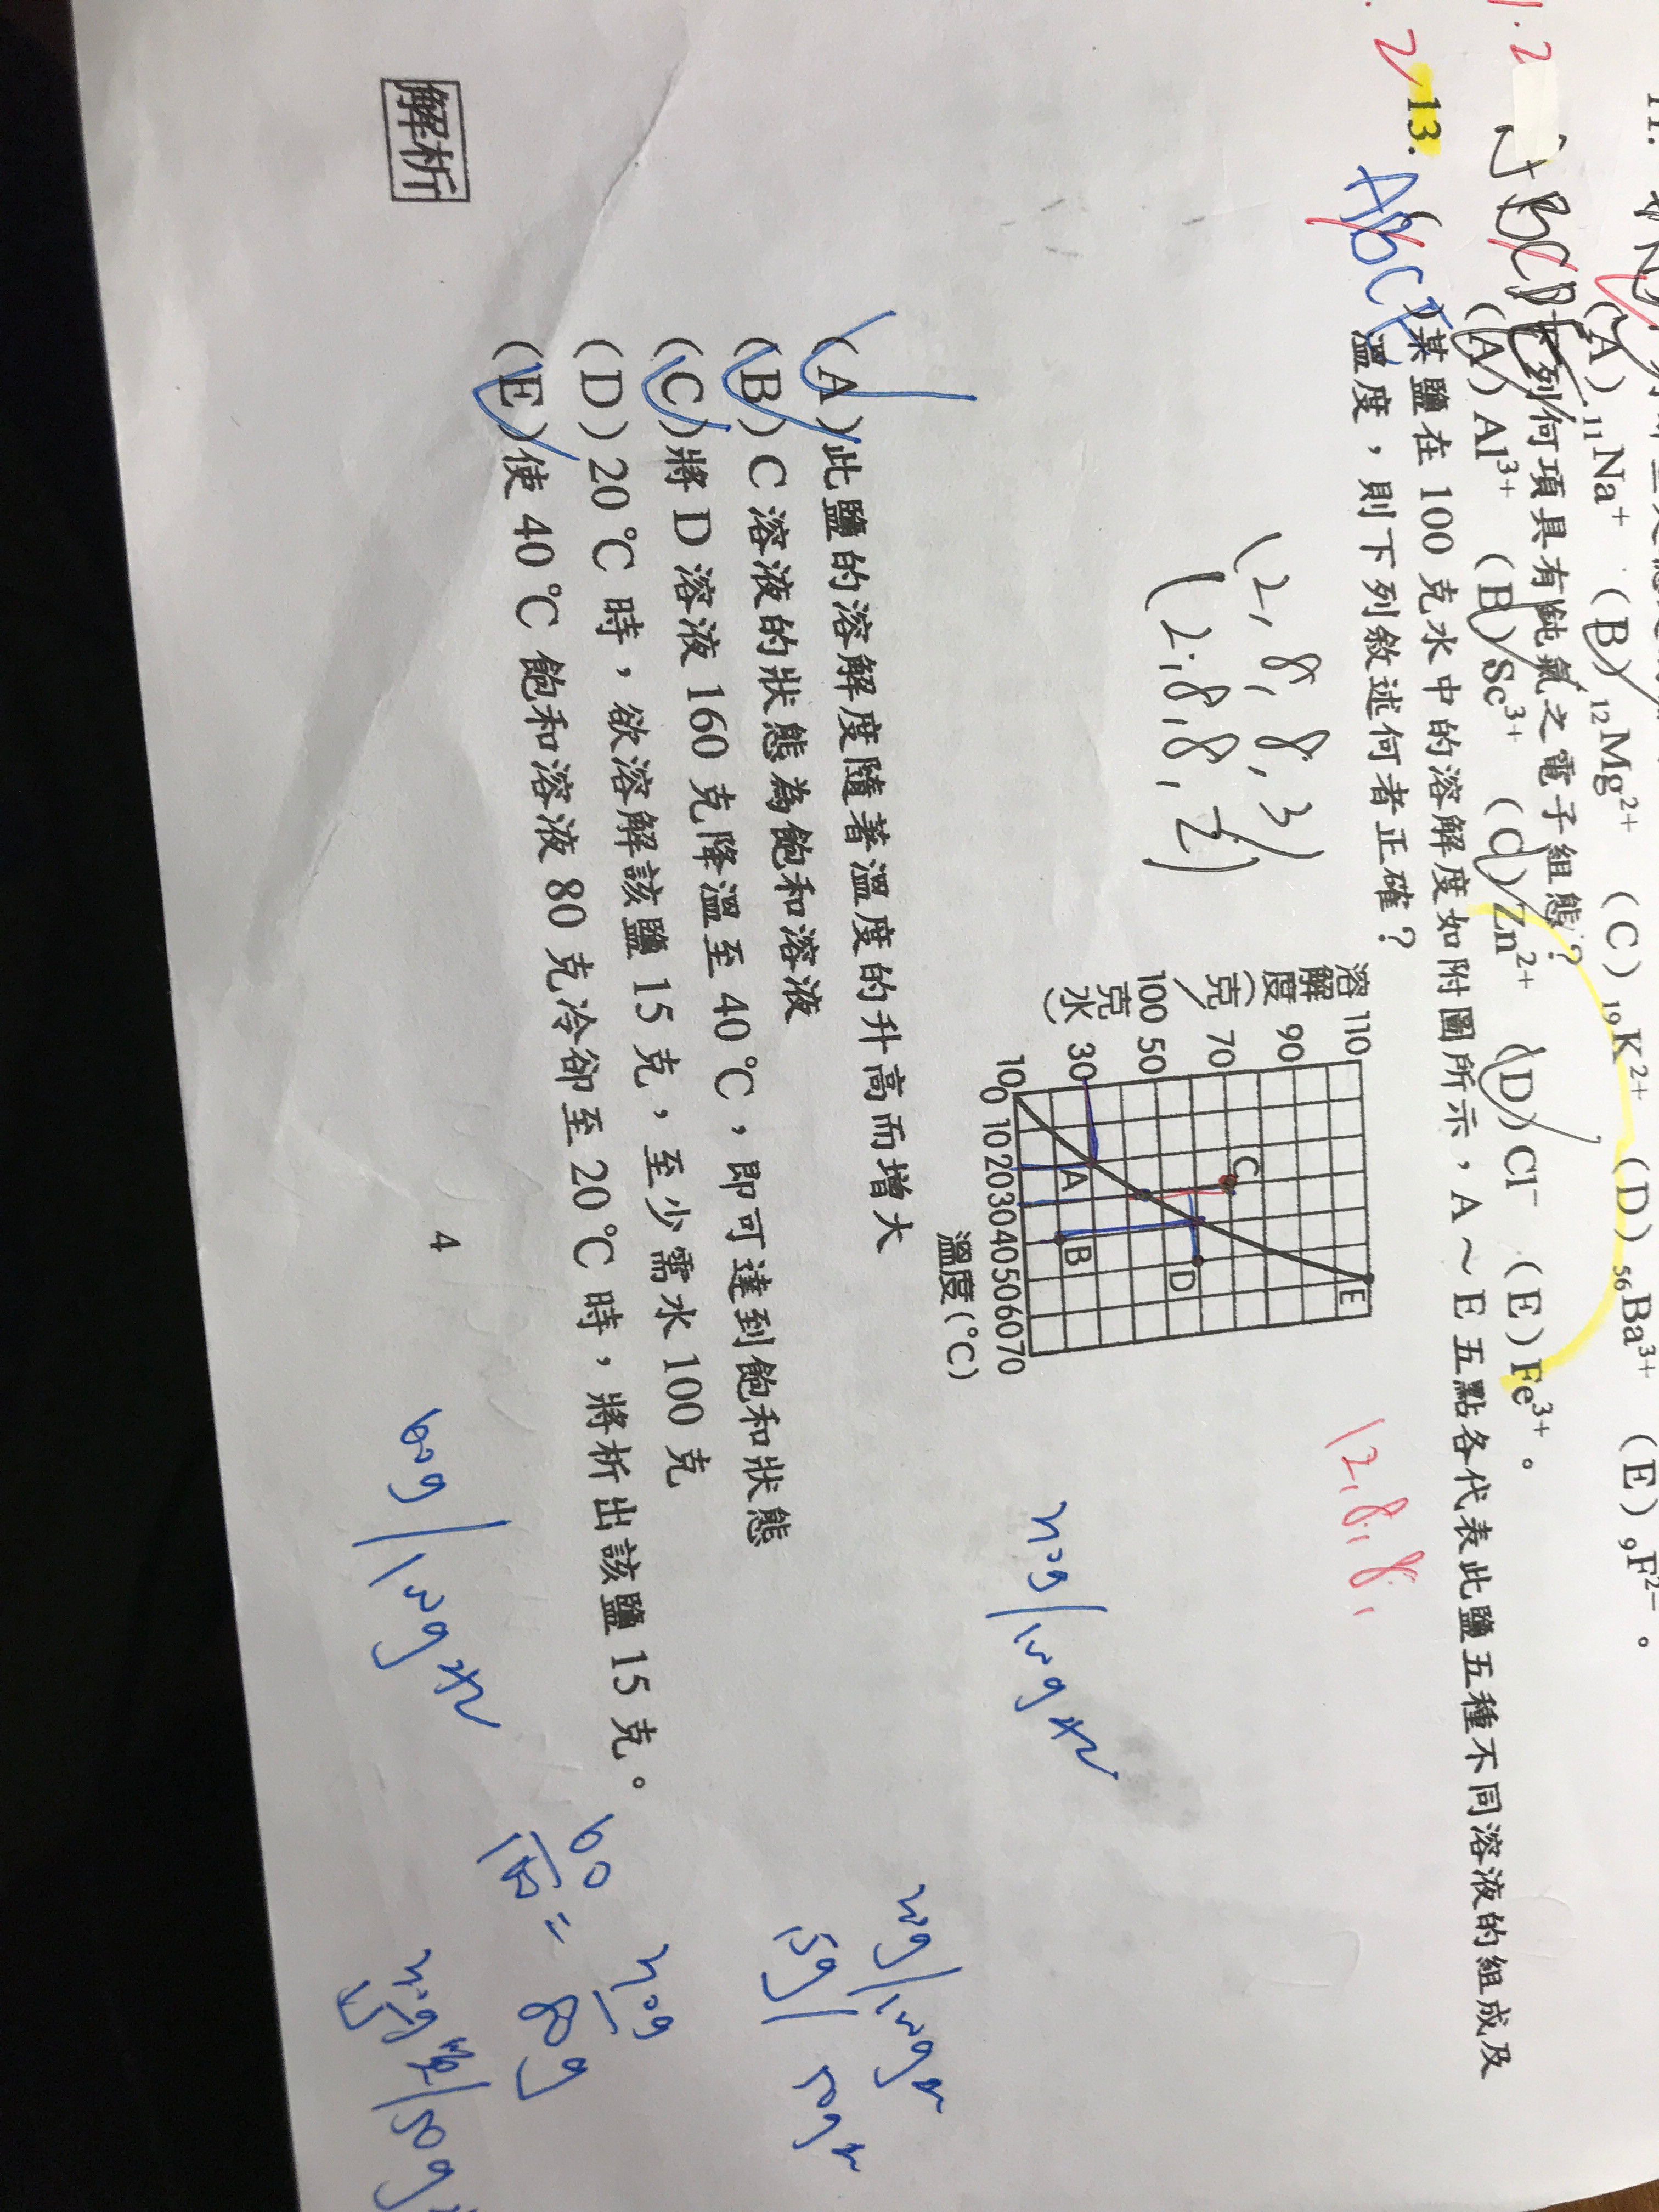 (A) ₁₁Na⁺ (B) ₁₂Mg²⁺ (C) ₁₉K²⁺ (D) ₅₆Ba³⁺ (E) ₉F²⁻。
1.2
BCD
下列何項具有鈍氣之電子組態?
(A) Al³⁺ (B) Sc³⁺ (C) Zn²⁺ (D) Cl⁻ (E) Fe³⁺。
2
13. (ABCE)某鹽在 100 克水中的溶解度如附圖所示,A～E 五點各代表此鹽五種不同溶液的組成及
溫度,則下列敘述何者正確?
(2,8,8,3)
(2,8,8,2)
(2,8,8,
溶解度(克/100克水)
110
90
70
50
30
10
0 10 20 30 40 50 60 70
溫度(°C)
A
B
C
D
E
30g/100g水
(A)此鹽的溶解度隨著溫度的升高而增大
(B) C 溶液的狀態為飽和溶液
(C)將 D 溶液 160 克降溫至 40°C,即可達到飽和狀態
(D) 20°C 時,欲溶解該鹽 15 克,至少需水 100 克
(E)使 40°C 飽和溶液 80 克冷卻至 20°C 時,將析出該鹽 15 克。
60g/100g水
15g/50g
解析
4